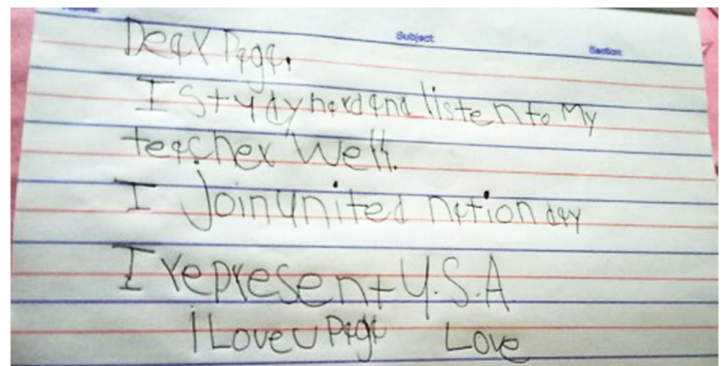 Subject Section
Dear Papa.
I study hard and listen to My
teacher Well.
I Join United nation day
I represent U.S.A
I Love U Papa Love